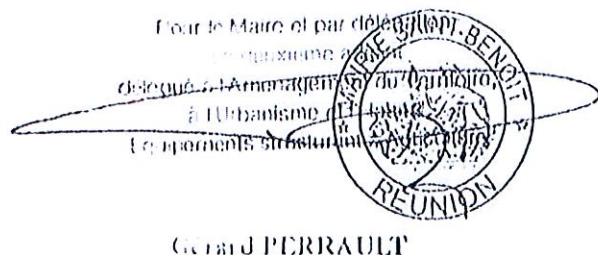 Pour le Maire et par délégation
deuxième adjoint
délégué à l'Aménagement du Territoire,
à l'Urbanisme et
Equipements structurants
MAIRIE SAINT-BENOIT
REUNION
Gérard PERRAULT